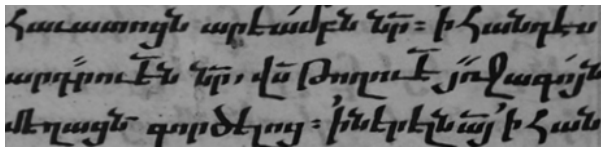 հաւատոցն արէամբն նր̃։ ի հանդէս
արդ̃րուէ̃ն նր̃, վս̃ թողուէ̃ յո՛ւջագոյն
մեղացն գործելոց։ ի՛ներելն ա՟յ ի հան